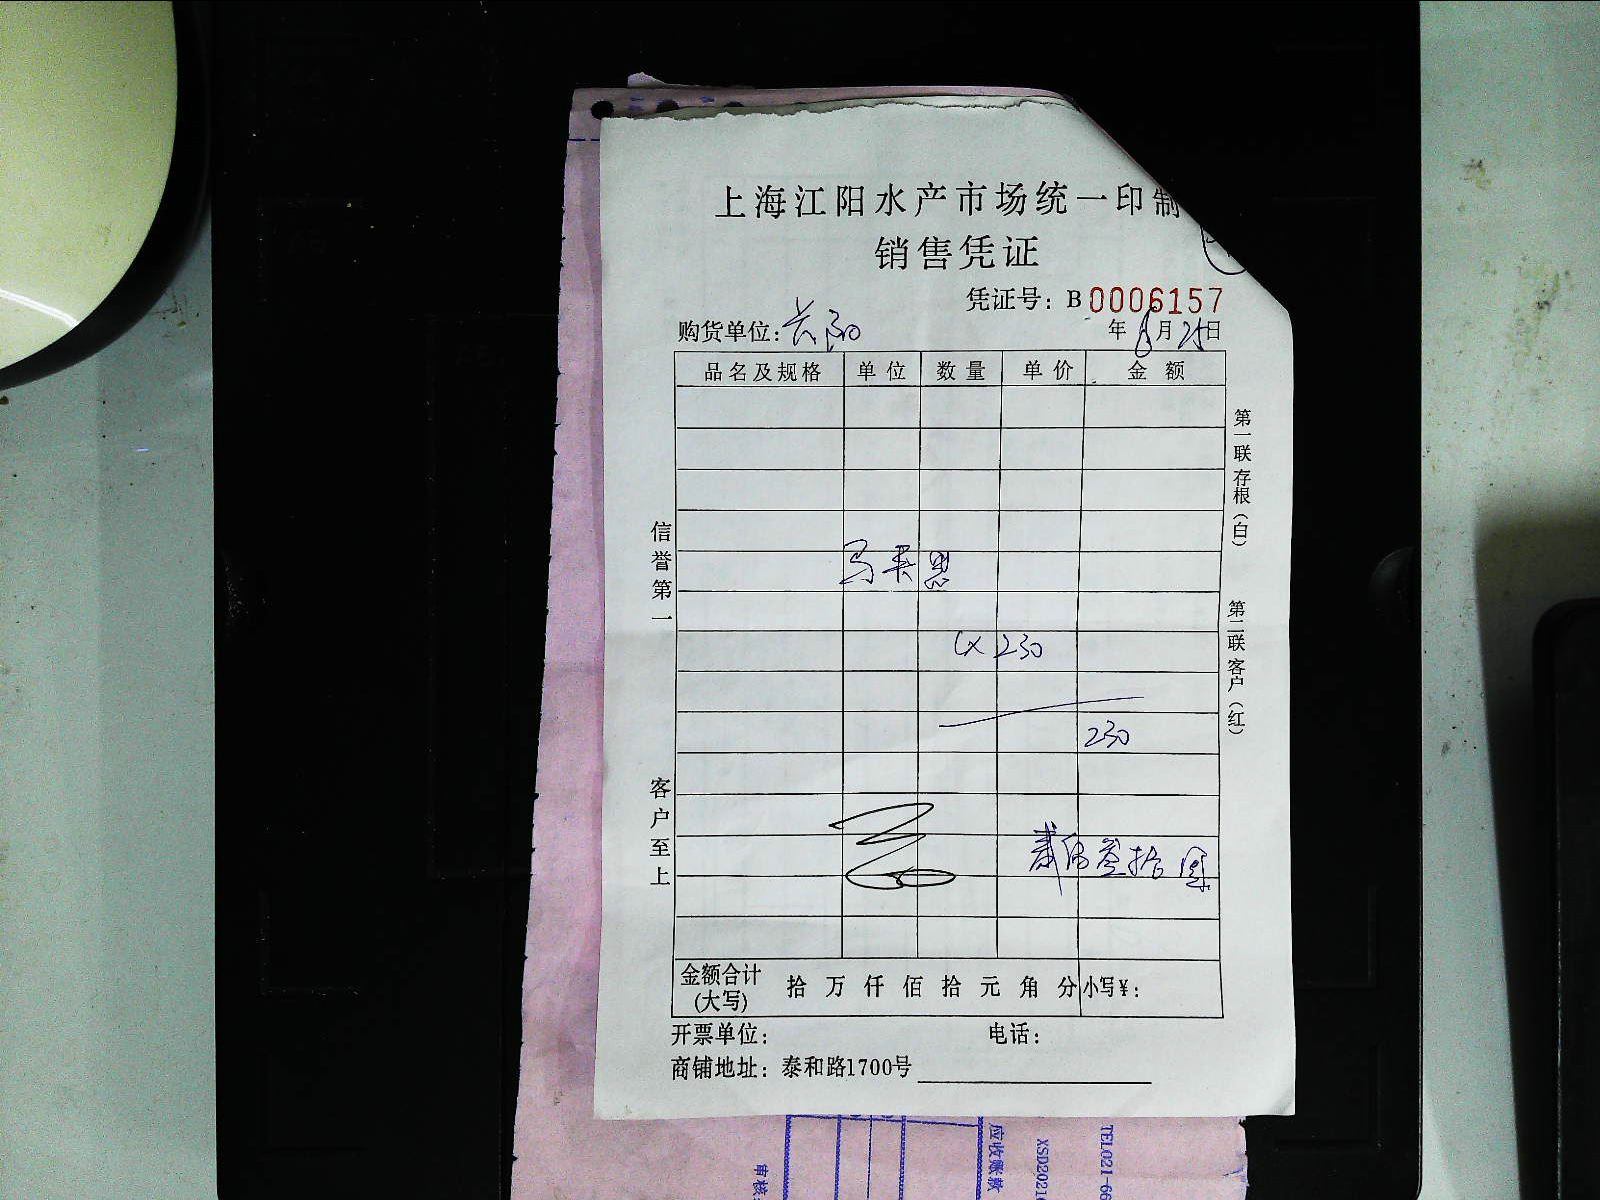 上海江阳水产市场统一印制
销售凭证
凭证号：B0006157
购货单位：长阳
年8月25日
品名及规格 单位 数量 单价 金额
第一联存根（白）
第二联客户（红）
信誉第一
客户至上
马来思
230
230
贰佰叁拾圆
金额合计（大写） 拾万仟佰拾元角分 小写¥：
开票单位： 电话：
商铺地址：泰和路1700号
审核
应收账款
XSD2021
TEL021-66